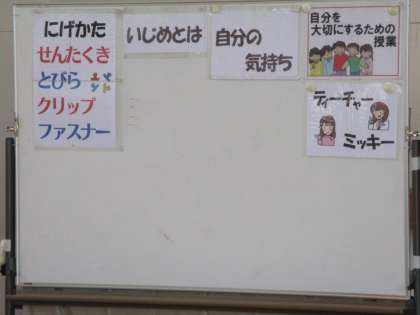 にげかた
せんたくき
とびら
クリップ
ファスナー
いじめとは
自分の
気持ち
自分を
大切にするための
授業
ティーチャー
ミッキー